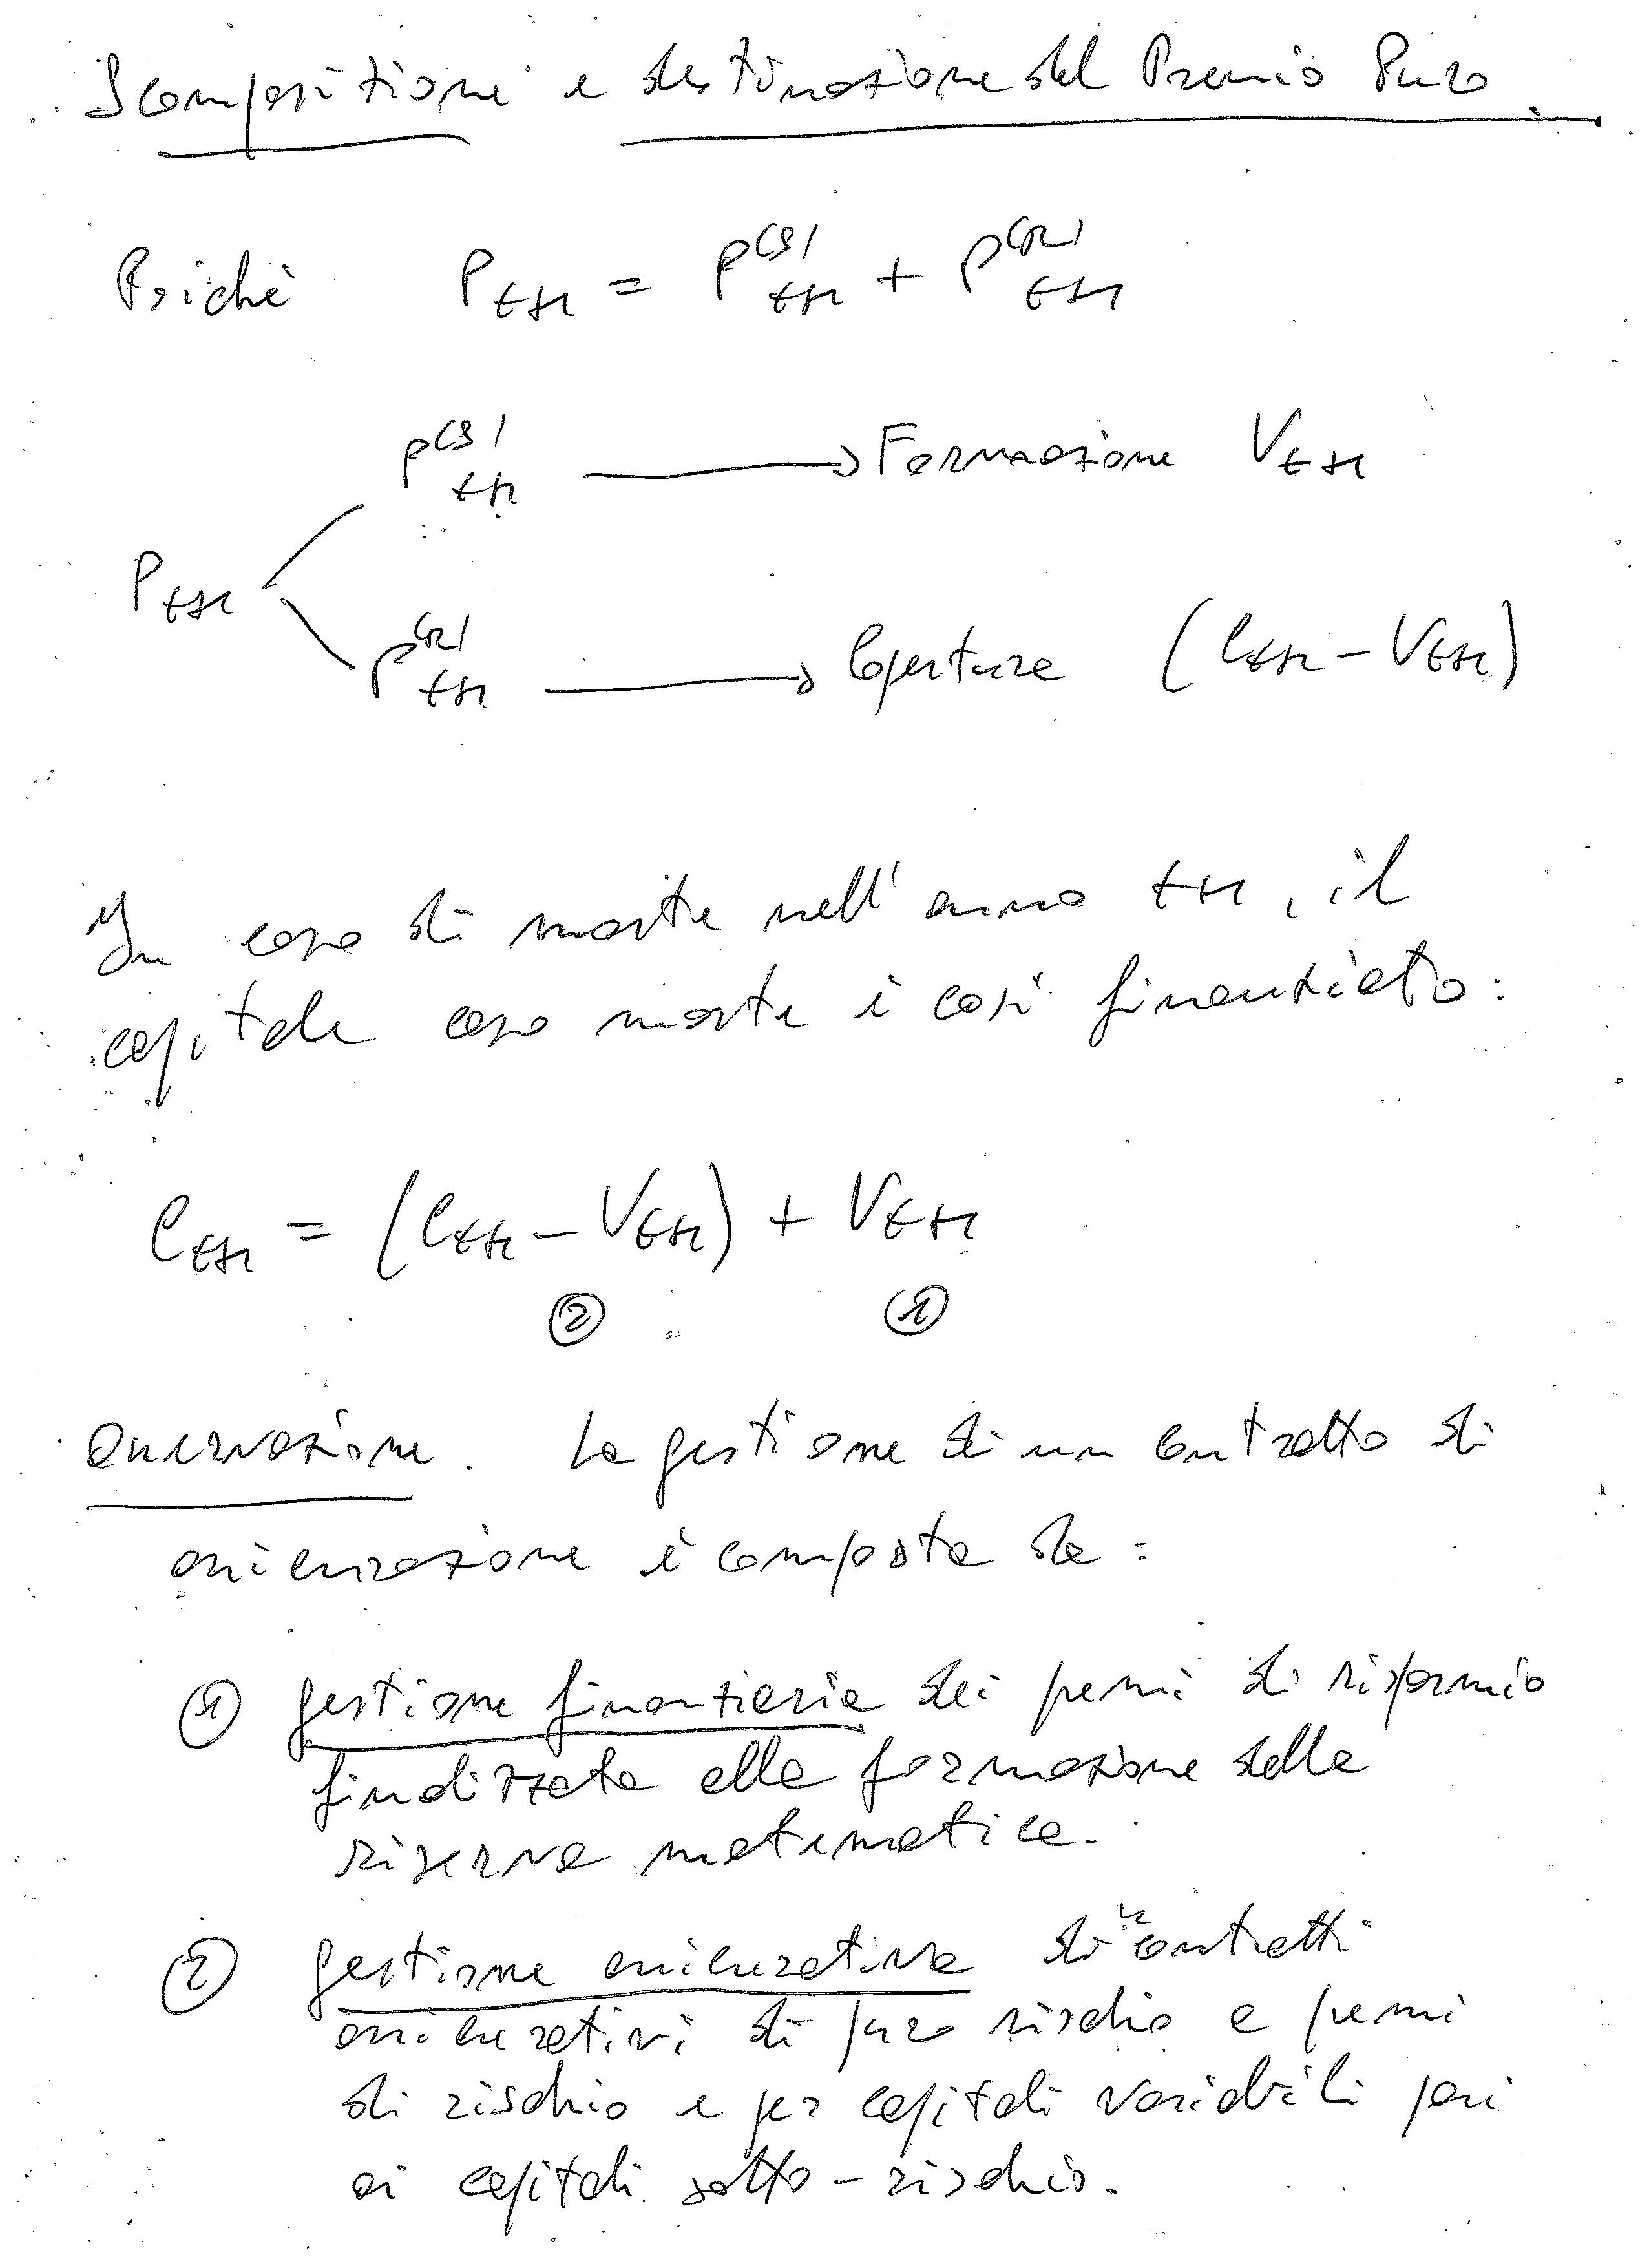 Scomposizione e destinazione del Premio Puro.
Poiché P_{t+1} = P^{(S)}_{t+1} + P^{(R)}_{t+1}
P^{(S)}_{t+1} → Formazione V_{t+1}
P_{t+1}
P^{(R)}_{t+1} → Copertura (C_{t+1} - V_{t+1})
In caso di morte nell'anno t+1, il
capitale caso morte è così finanziato:
C_{t+1} = (C_{t+1} - V_{t+1}) + V_{t+1}
② ①
Osservazione. La gestione di un contratto di
assicurazione è composta da:
① gestione finanziaria dei premi di risparmio
finalizzata alla formazione della
riserva matematica.
② gestione assicurativa di contratti
assicurativi di puro rischio a premi
di rischio e per capitali variabili pari
ai capitali sotto-rischio.